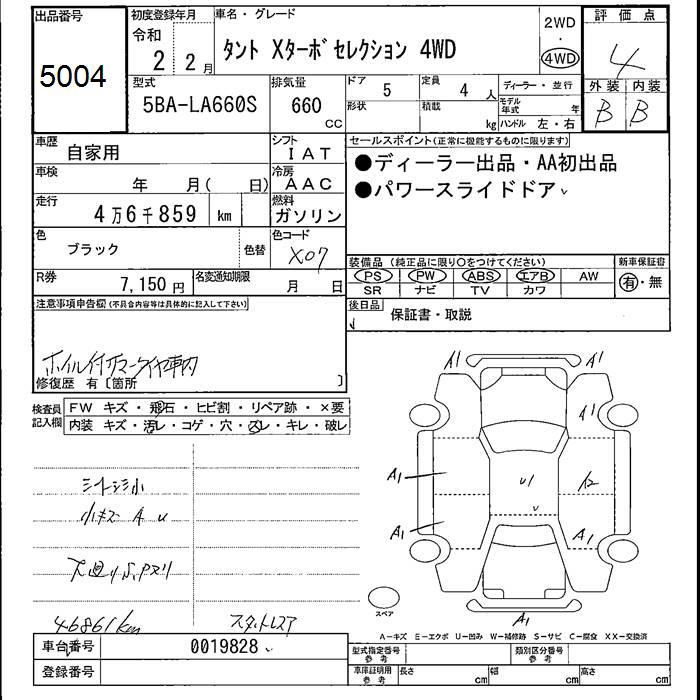 出品番号
5004
初度登録年月
令和
2 2月
車名・グレード
タント Xターボセレクション 4WD
2WD
・
4WD
評価点
4
外装 内装
B B
型式
5BA-LA660S
排気量
660
cc
ドア
5
定員
4 人
ディーラー・並行
形状
積載
kg
モデル年式
年
ハンドル 左・右
車歴
自家用
シフト
IAT
車検
年 月( 日)
冷房
AAC
走行
4万6千859 km
燃料
ガソリン
色
ブラック
色替
色コード
X07
R券
7,150 円
名変通知期限
月 日
セールスポイント(正常に機能するものに限ります)
●ディーラー出品・AA初出品
●パワースライドドア
装備品 (純正品に限り○をつけてください)
新車保証書
PS PW ABS エアB AW
有・無
SR ナビ TV カワ
後日品
保証書・取説
注意事項申告欄(不具合内容等は具体的に記入して下さい)
修復歴 有〔箇所 〕
検査員記入欄
FW キズ・飛石・ヒビ割・リペア跡・×要
内装 キズ・汚レ・コゲ・穴・スレ・キレ・破レ
小キズ A U
46861km
A1 A1
A1
A1 U1 A2
A1 A1
A1
スペア
A-キズ E-エクボ U-凹み W-補修跡 S-サビ C-腐食 XX-交換済
車台番号
0019828
登録番号
型式指定番号
参考
類別区分番号
参考
車庫証明用
参考
長さ cm
幅 cm
高さ cm